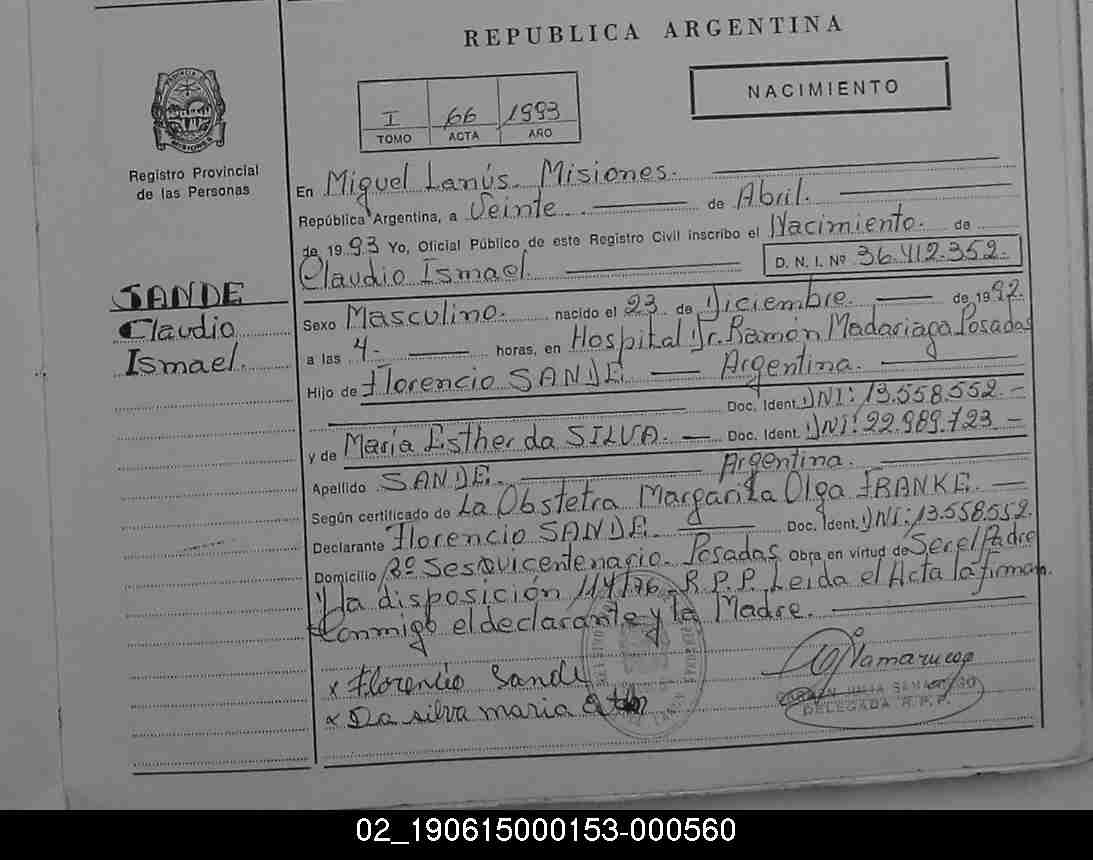 REPUBLICA ARGENTINA
NACIMIENTO
I 66 1993
TOMO ACTA AÑO
PROVINCIA
MISIONES
Registro Provincial
de las Personas
SANDE
Claudio
Ismael.
En Miguel Lanús. Misiones.
República Argentina, a Veinte de Abril.
de 1993 Yo, Oficial Público de este Registro Civil inscribo el Nacimiento. de
Claudio Ismael. D. N. I. Nº 36.412.352.
Sexo Masculino. nacido el 23 de Diciembre. de 1992.
a las 4. horas, en Hospital Dr. Ramón Madariaga Posadas
Hijo de Florencio SANDE Argentina.
Doc. Ident. DNI: 13.558.552.-
y de María Esther da SILVA. Doc. Ident. DNI: 22.989.723-
Argentina.
Apellido SANDE.
Según certificado de La Obstetra Margarita Olga FRANKE.
Declarante Florencio SANDE. Doc. Ident. DNI: 13.558.552.
Domicilio Bº Sesquicentenario. Posadas Obra en virtud de Ser el Padre
y la disposición 114/76 R.P.P. Leída el Acta la firman
Conmigo el declarante y la Madre.
x Florencio Sande
x Da silva maria
DELEGADA R.P.P.
02_190615000153-000560